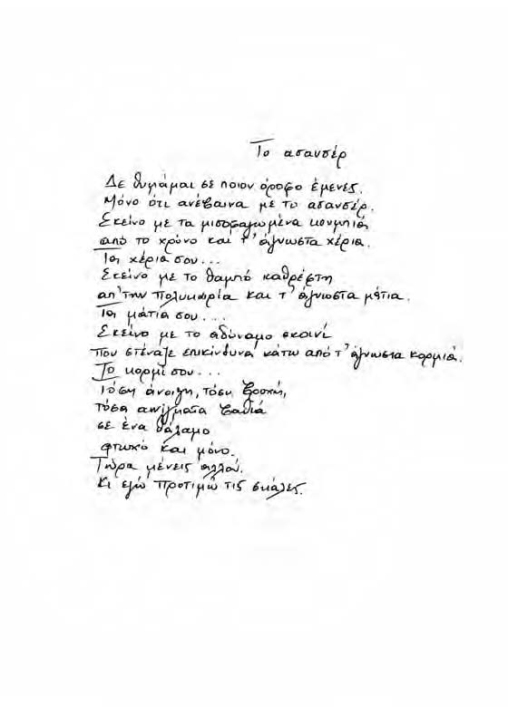 Το ασανσέρ
Δε θυμάμαι σε ποιον όροφο έμενες.
Μόνο ότι ανέβαινα με το ασανσέρ.
Εκείνο με τα μισοφαγωμένα κουμπιά
από το χρόνο και τ' άγνωστα χέρια.
Τα χέρια σου...
Εκείνο με το θαμπό καθρέφτη
απ' την πολυκαιρία και τ' άγνωστα μάτια.
Τα μάτια σου...
Εκείνο με το αδύναμο σκοινί
που στέναζε επικίνδυνα κάτω από τ' άγνωστα κορμιά.
Το κορμί σου...
Τόση άνοιξη, τόση βροχή,
τόσα αινίγματα βαθιά
σε ένα θάλαμο
φτωχό και μόνο.
Τώρα μένεις αλλού.
Κι εγώ προτιμώ τις σκάλες.